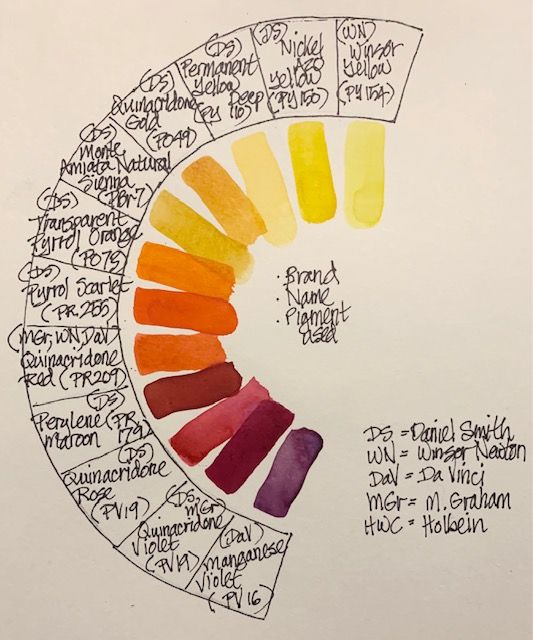 (WN)
Winsor
Yellow
(PY154)
(DS)
Nickel
Azo
Yellow
(PY150)
(DS)
Permanent
Yellow
Deep
(PY 110)
(DS)
Quinacridone
Gold
(PO49)
(DS)
Monte
Amiata Natural
Sienna
(PBr7)
(DS)
Transparent
Pyrrol Orange
(PO73)
(DS)
Pyrrol Scarlet
(PR 255)
(MGr, WN, DaV)
Quinacridone
Red (PR209)
(DS)
Perylene (PR
Maroon 179)
(DS)
Quinacridone
Rose
(PV19)
(DS, MGr)
Quinacridone
Violet
(PV19)
(DaV)
Manganese
Violet
(PV 16)
· Brand
· Name
· Pigment
used
DS = Daniel Smith
WN = Winsor Newton
DaV = Da Vinci
MGr = M. Graham
HWC = Holbein